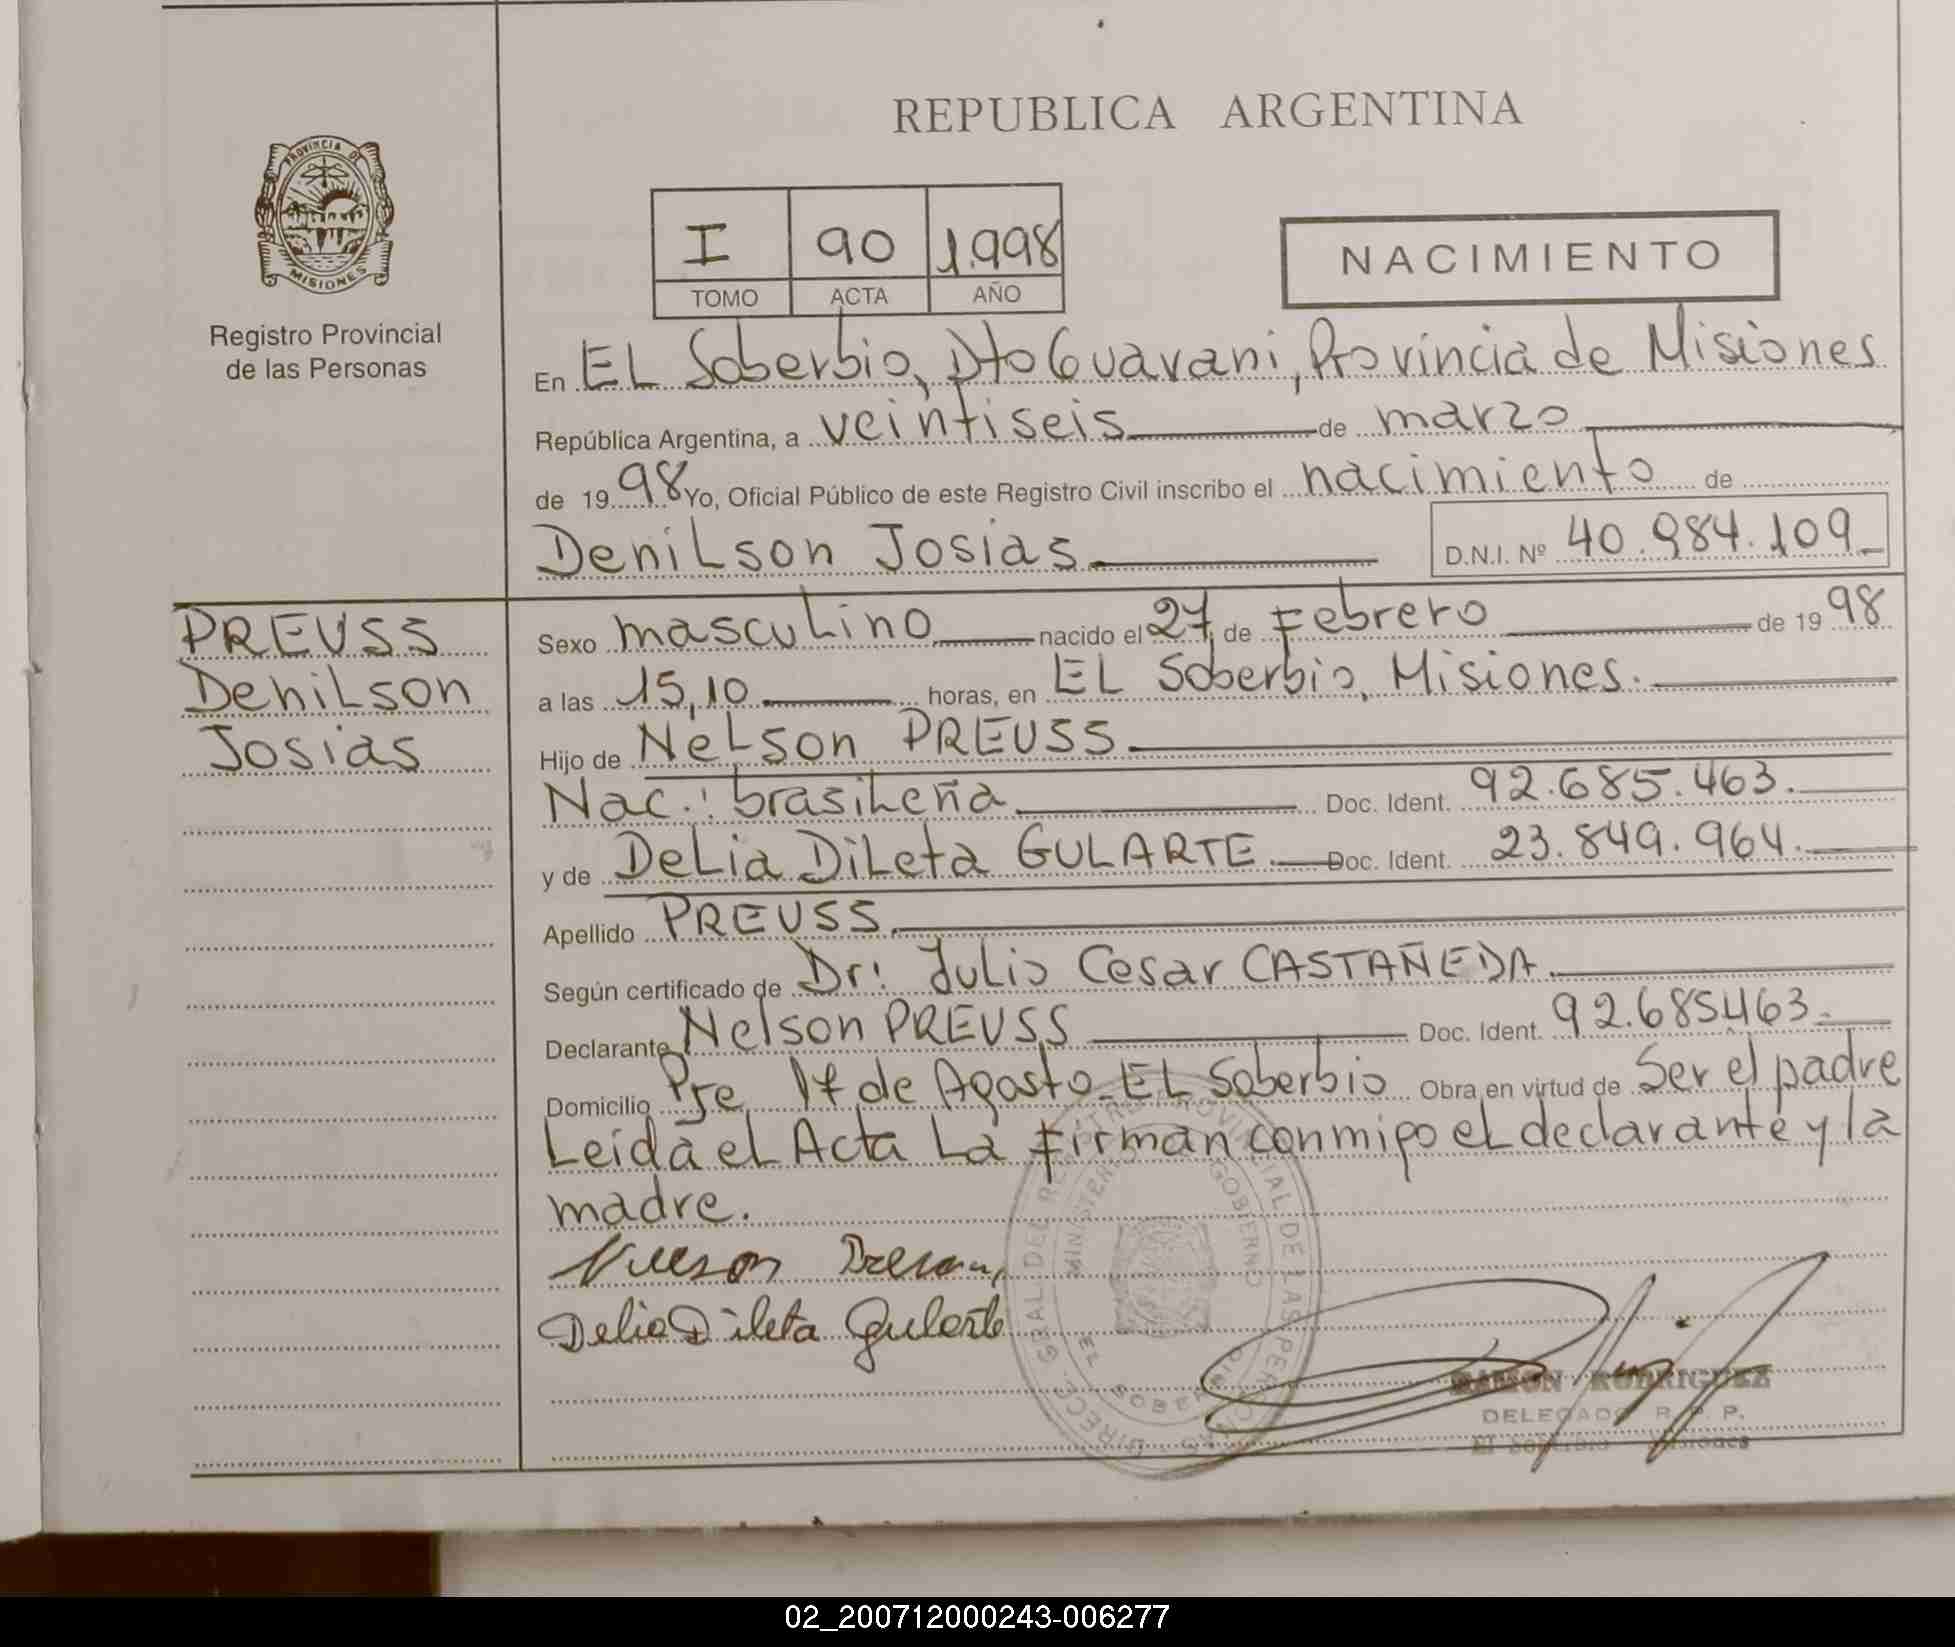 REPUBLICA ARGENTINA
PROVINCIA DE
MISIONES
Registro Provincial
de las Personas
I 90 1.998
TOMO ACTA AÑO
NACIMIENTO
En EL Soberbio, Dto Guarani, Provincia de Misiones
República Argentina, a veintiseis de marzo
de 19 98 Yo, Oficial Público de este Registro Civil inscribo el nacimiento de
Denilson Josias D.N.I. Nº 40.984.109
PREUSS
Denilson
Josias
Sexo masculino nacido el 27 de Febrero de 19 98
a las 15,10 horas, en EL Soberbio, Misiones.
Hijo de Nelson PREUSS
Nac.: brasileña Doc. Ident. 92.685.463.
y de Delia Dileta GULARTE Doc. Ident. 23.849.964.
Apellido PREUSS
Según certificado de Dr: Julio Cesar CASTAÑEDA
Declarante Nelson PREUSS Doc. Ident. 92.685463.
Domicilio Pje 17 de Agosto-EL Soberbio Obra en virtud de Ser el padre
Leida el Acta La Firman conmigo el declarante y la
madre.
Delia Dileta Gularte
DIRECC. GRAL DEL REGISTRO PROVINCIAL DE LAS PERSONAS
MINISTERIO GOBIERNO
EL SOBERBIO
RAMON RODRIGUEZ
DELEGADO R. P. P.
El Soberbio Misiones
02_200712000243-006277